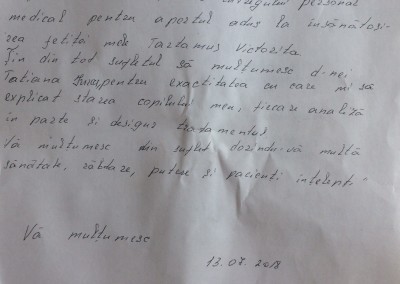 personal
medical pentru aportul adus la însănătoși-
rea fetiței mele Tartamus Victorița
Țin din tot sufletul să mulțumesc d-nei
Tatiana pentru exactitatea cu care mi sa
explicat starea copilului meu, fiecare analiză
în parte și desigur tratamentul
Vă mulțumesc din suflet dorindu-vă multă
sănătate, răbdare, putere și pacienți înțelepți"
Vă mulțumesc
13.07.2018